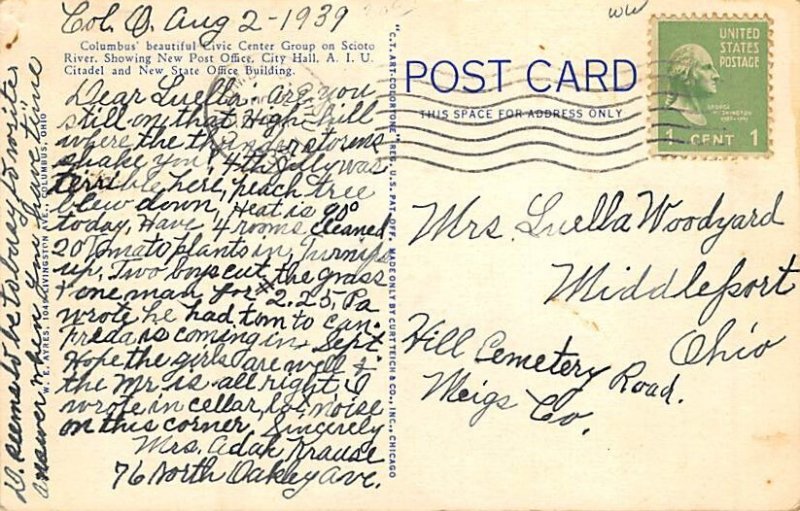 Col. O. Aug 2-1939
Columbus' beautiful Civic Center Group on Scioto
River. Showing New Post Office, City Hall, A. I. U.
Citadel and New State Office Building.
Dear Luella: Are you
still on that High-hill
where the thunderstorms
shake you, 4th July was
terrible here, peach tree
blew down, Heat is 90°
today, Have 4 rooms cleaned
20 Tomato plants in, Turnips
up, Two boys cut the grass
+ one man for $2.25, Pa
wrote he had tom to can.
Freda is coming in Sept
Hope the girls are well &
the Mr. is all right, I
wrote in cellar, lot noise
on this corner, Sincerely
Mrs. Adah Krause
76 North Oakley Ave.
D. seems to be to busy to write
answer when you have time
W. E. AYRES, 1049 LIVINGSTON AVE., COLUMBUS, OHIO
"C.T. ART-COLORTONE" REG. U.S. PAT. OFF. MADE ONLY BY CURT TEICH & CO., INC., CHICAGO
WW
POST CARD
THIS SPACE FOR ADDRESS ONLY
UNITED
STATES
POSTAGE
GEORGE
WASHINGTON
1 CENT 1
Mrs Luella Woodyard
Middleport
Ohio
Hill Cemetery Road.
Meigs Co.